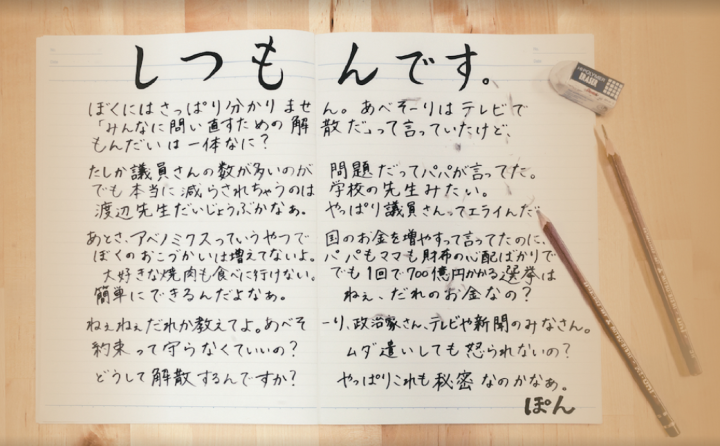 しつもんです。
ぼくにはさっぱり分かりません。あべそーりはテレビで
「みんなに問い直すための解散だ」って言っていたけど、
もんだいは一体なに?
たしか議員さんの数が多いのが問題だってパパが言ってた。
でも本当に減らされちゃうのは学校の先生みたい。
渡辺先生だいじょうぶかなぁ。やっぱり議員さんってエライんだ
あとさ、アベノミクスっていうやつで国のお金を増やすって言ってたのに、
ぼくのおこづかいは増えてないよ。パパもママも財布の心配ばかりで
大好きな焼肉も食べに行けない。でも1回で700億円かかる選挙は
簡単にできるんだよなぁ。ねぇ、だれのお金なの?
ねぇねぇだれか教えてよ。あべそーり、政治家さん、テレビや新聞のみなさん。
約束って守らなくていいの?ムダ遣いしても怒られないの?
どうして解散するんですか?やっぱりこれも秘密なのかなぁ。
ぽん
ERASER